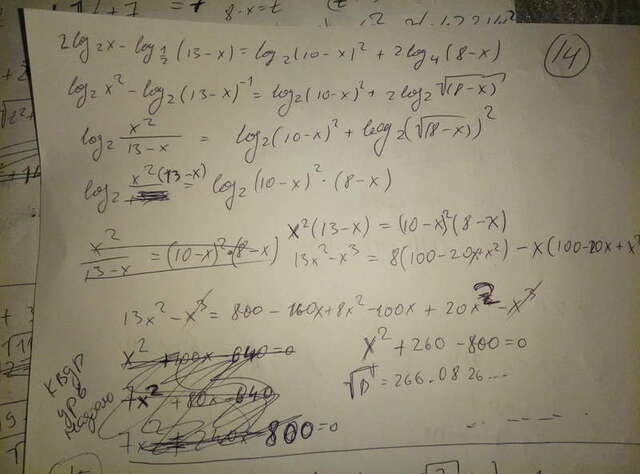 8-x=t
2log₂x - log½(13-x) = log₂(10-x)² + 2log₄(8-x)
14
log₂x² - log₂(13-x)⁻¹ = log₂(10-x)² + 2log₂√(8-x)
log₂ x²/13-x = log₂(10-x)² + log₂(√(8-x))²
log₂ x²(13-x) = log₂(10-x)²·(8-x)
x²(13-x) = (10-x)²(8-x)
x²/13-x = (10-x)²·(8-x)
13x²-x³ = 8(100-20x+x²) - x(100-20x+x²
13x²-x³ = 800-160x+8x²-100x+20x²-x³
x² +100x -640=0
x²+260-800=0
7x² +80x -640
√D = 266.0826...
800=0
квдр
урв